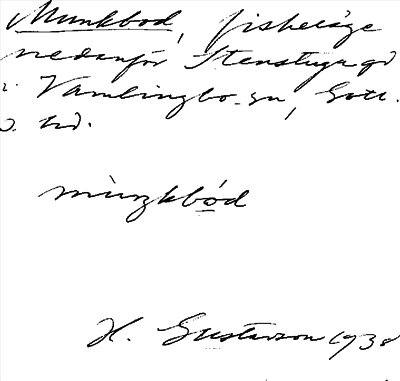 Munkbod, fiskeläge
nedanför Stenstugu gd
i Vamlingbo sn, Gotl.
s. hd.
mùŋkbód
H. Gustavson 1938